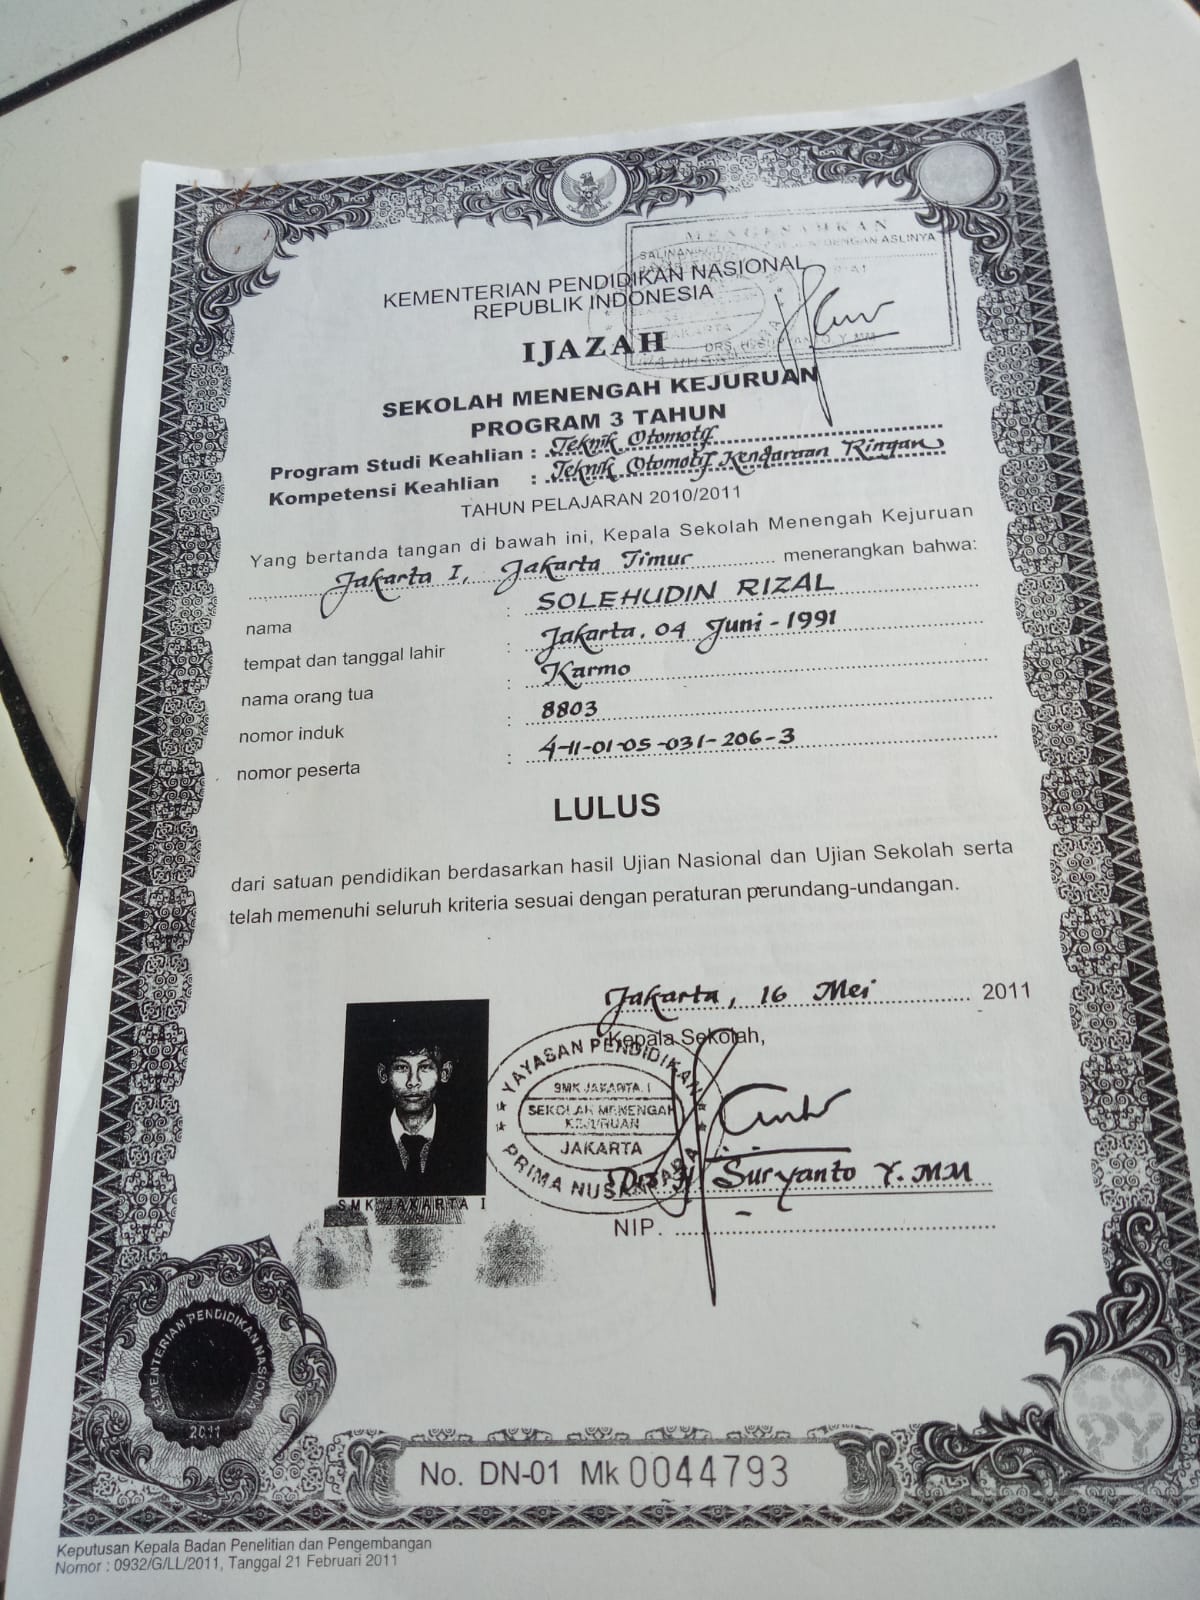 MENGESAHKAN
SALINAN DENGAN ASLINYA
DRS. H. SURYANTO, Y, MM
KEMENTERIAN PENDIDIKAN NASIONAL
REPUBLIK INDONESIA
IJAZAH
SEKOLAH MENENGAH KEJURUAN
PROGRAM 3 TAHUN
Program Studi Keahlian : Teknik Otomotif
Kompetensi Keahlian : Teknik Otomotif Kendaraan Ringan
TAHUN PELAJARAN 2010/2011
Yang bertanda tangan di bawah ini, Kepala Sekolah Menengah Kejuruan
Jakarta I, Jakarta Timur menerangkan bahwa:
nama : SOLEHUDIN RIZAL
tempat dan tanggal lahir : Jakarta, 04 Juni - 1991
nama orang tua : Karmo
nomor induk : 8803
nomor peserta : 4-11-01-05-031-206-3
LULUS
dari satuan pendidikan berdasarkan hasil Ujian Nasional dan Ujian Sekolah serta
telah memenuhi seluruh kriteria sesuai dengan peraturan perundang-undangan.
Jakarta, 16 Mei 2011
Kepala Sekolah,
YAYASAN PENDIDIKAN
SMK JAKARTA I
SEKOLAH MENENGAH
KEJURUAN
JAKARTA
PRIMA NUSANTARA
Drs. H. Suryanto Y. MM
NIP.
SMK JAKARTA I
KEMENTERIAN PENDIDIKAN NASIONAL
2011
COPY
No. DN-01 Mk 0044793
Keputusan Kepala Badan Penelitian dan Pengembangan
Nomor : 0932/G/LL/2011, Tanggal 21 Februari 2011